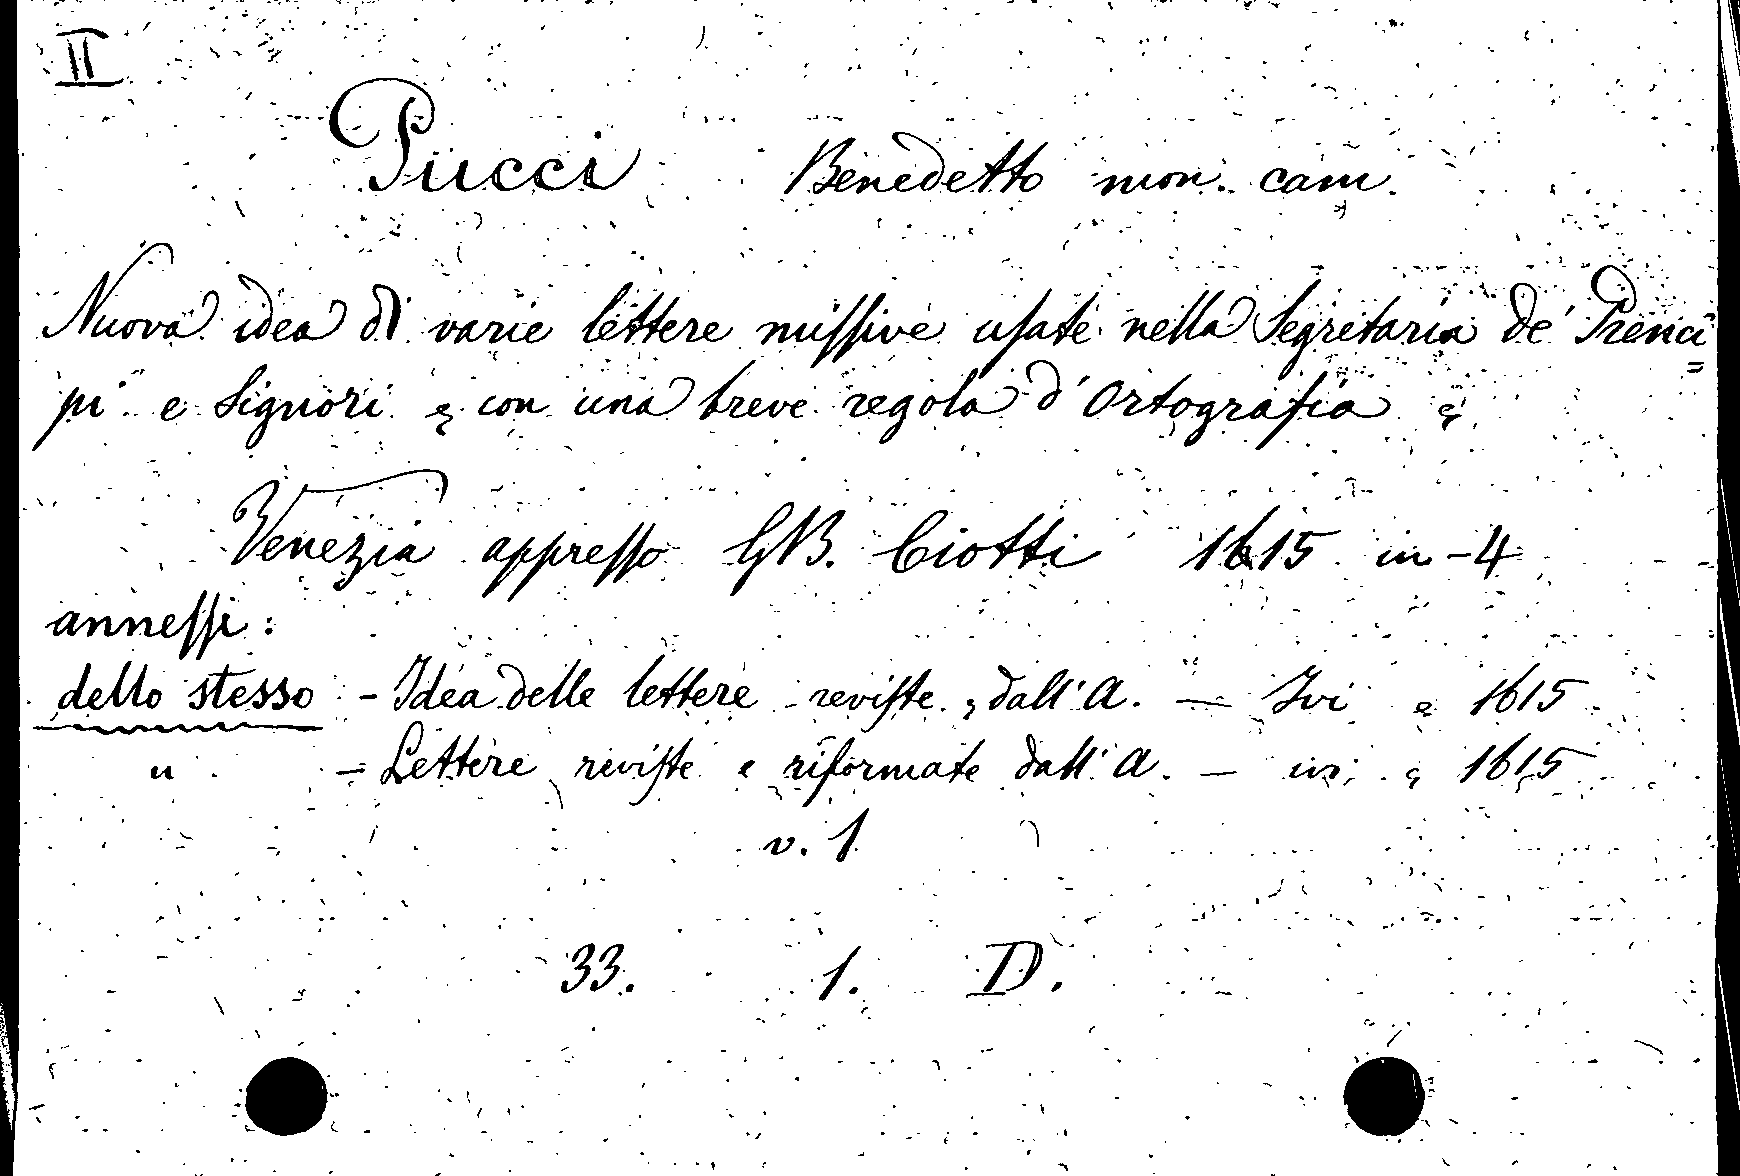 II
Pucci Benedetto mon. cam.
Nuova idea di varie lettere missive usate nella Segretaria de' Prenci=
pi e Signori e con una breve regola d'Ortografia e
Venezia appresso GB. Ciotti 1615 in-4
annessi:
dello stesso - Idea delle lettere reviste, dall'A. — Ivi e 1615
" - Lettere reviste e riformate dall'A. — ivi e 1615
v. 1
33. 1. D.